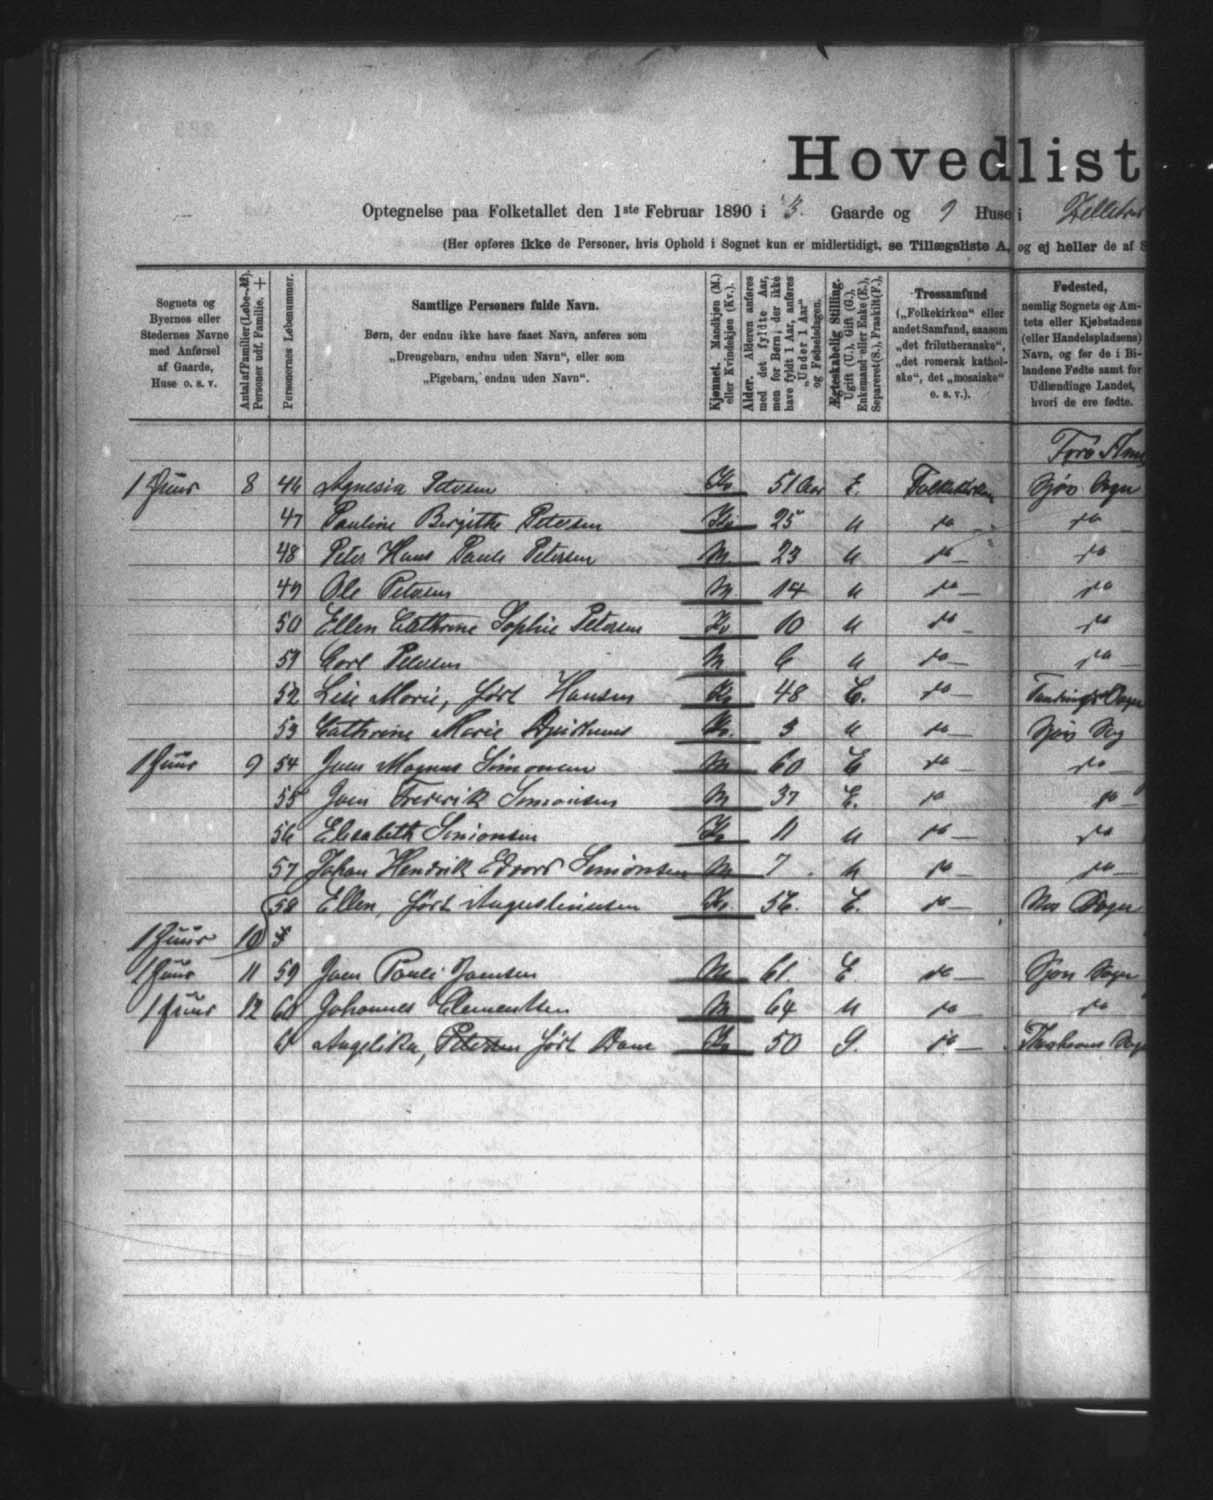 Hovedlist
Optegnelse paa Folketallet den 1ste Februar 1890 i 3. Gaarde og 9 Huse i
(Her opføres ikke de Personer, hvis Ophold i Sognet kun er midlertidigt, se Tillægsliste A, og ej heller de af S
Sognets og Byernes eller Stedernes Navne med Anførsel af Gaarde, Huse o. s. v.
Antal af Familier (Løbe-№). Personer udf. Familie. +
Personernes Løbenummer.
Samtlige Personers fulde Navn.
Børn, der endnu ikke have faaet Navn, anføres som
„Drengebarn, endnu uden Navn“, eller som
„Pigebarn, endnu uden Navn“.
Kjønnet. Mandkjøn (M.) eller Kvindekjøn (Kv.).
Alder. Alderen anføres med det fyldte Aar, men for Børn, der ikke have fyldt 1 Aar, anføres „Under 1 Aar“ og Fødselsdagen.
Ægteskabelig Stilling. Ugift (U.), Gift (G.), Enkemand eller Enke (E.), Separeret (S.), Fraskilt (F.).
Trossamfund („Folkekirken“ eller andet Samfund, saasom „det frilutheranske“, „det romersk katholske“, det „mosaiske“ o. s. v.).
Fødested, nemlig Sognets og Amtets eller Kjøbstadens (eller Handelspladsens) Navn, og for de i Bilandene Fødte samt for Udlændinge Landet, hvori de ere fødte.
1 Huus 8 46 Agnesia Petersen Kv 51 Aar E. Folkekirken Sjov Sogn
47 Pauline Birgithe Petersen Kv 25 u do do
48 Peter Hans Paule Petersen M 23 u do do
49 Ole Petersen M 14 u do do
50 Ellen Cathrine Sophie Petersen Kv 10 u do do
51 Carl Petersen M 6 u do do
52 Lise Marie, født Hansen Kv 48 E. do
53 Cathrine Marie Kv. 3 u do Sjov Sog
1 Huus 9 54 Joen Magnus Simonsen M 60 E do do
55 Joen Frederik Simonsen M 37 E. do do
56 Elisabeth Simonsen Kv 11 u do do
57 Johan Hendrik Edvard Simonsen M 7 u do do
58 Ellen, født Augustinussen Kv 56. E. do Nes Sogn
1 Huus 10
1 Huus 11 59 Joen Pauli Joensen M 61. E do Sjov Sogn
1 Huus 12 60 Johannes Clementsen M 64 u do do
61 Angelika, Petersen født Dam Kv 50 g. do Thorshavns Sogn